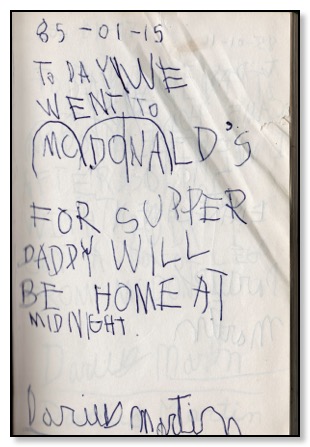 85-01-15
TODAY WE
WENT TO
MCDONALD'S
FOR SUPPER
DADDY WILL
BE HOME AT
MIDNIGHT.
Darius Martin